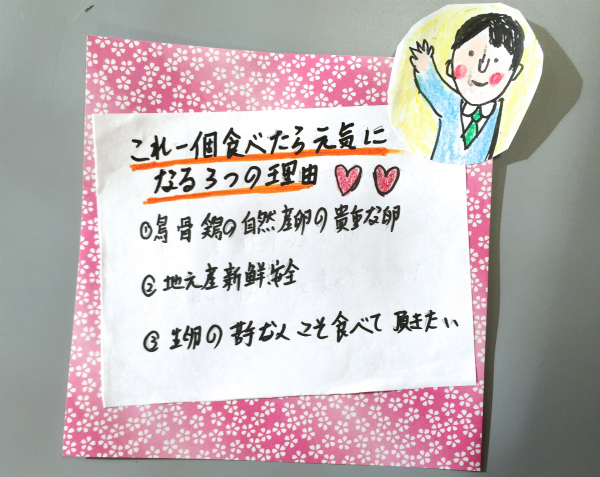 これ一個食べたら元気に
なる3つの理由
①烏骨鶏の自然産卵の貴重な卵
②地元産新鮮安全
③生卵の苦手な人こそ食べて頂きたい